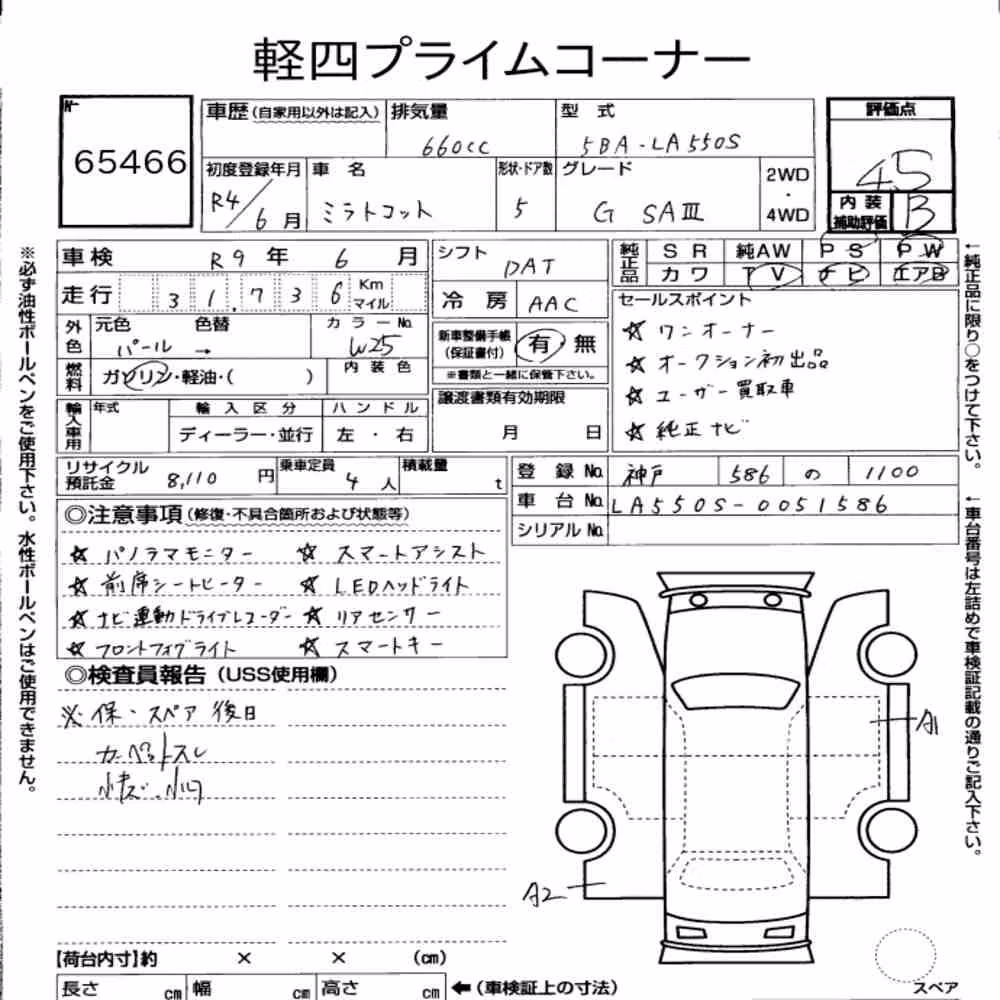 軽四プライムコーナー
65466
車歴(自家用以外は記入) 排気量 型式 評価点
660cc 5BA-LA550S 4.5
初度登録年月 車名 形状・ドア数 グレード 2WD・4WD
R4/6月 ミラトコット 5 G SAⅢ
内装補助評価 B
車検 R9年 6月 シフト DAT
純正品 SR 純AW PS PW
カワ TV ナビ エアB
走行 31,736 Km マイル 冷房 AAC
セールスポイント
☆ ワンオーナー
☆ オークション初出品
☆ ユーザー買取車
☆ 純正ナビ
外色 元色 色替 カラーNo.
パール → W25
新車整備手帳(保証書付) 有・無
※書類と一緒に保管下さい。
燃料 ガソリン・軽油・( ) 内装色
譲渡書類有効期限
月 日
輸入車用 年式 輸入区分 ハンドル
ディーラー・並行 左・右
リサイクル預託金 8,110円 乗車定員 4人 積載量 t
登録No. 神戸 586 の 1100
車台No. LA550S-0051586
シリアルNo.
◎注意事項(修復・不具合箇所および状態等)
☆ パノラマモニター ☆ スマートアシスト
☆ 前席シートヒーター ☆ LEDヘッドライト
☆ ナビ連動ドライブレコーダー ☆ リアセンサー
☆ フロントフォグライト ☆ スマートキー
◎検査員報告(USS使用欄)
※保・スペア後日
カーペットスレ
小キズ・小凹
A1
A2
【荷台内寸】約 × × (cm)
長さ cm 幅 cm 高さ cm ←(車検証上の寸法)
スペア
※必ず油性ボールペンをご使用下さい。水性ボールペンはご使用できません。
←純正品に限り○をつけて下さい。
←車台番号は左詰めで車検証記載の通りご記入下さい。